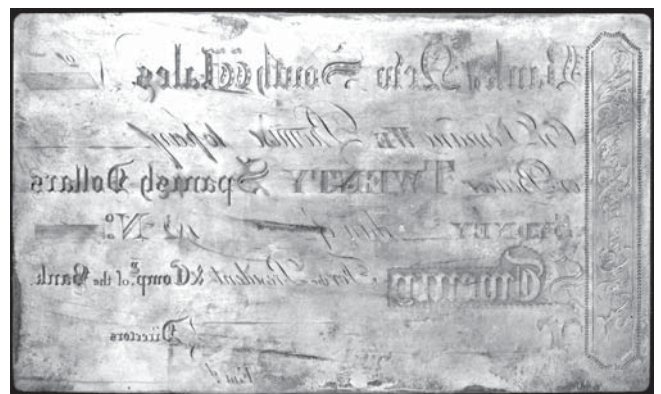 Bank of New South Wales No
On Demand We Promise to pay
or Bearer TWENTY Spanish Dollars
SYDNEY day of 18 No:
Twenty For the President & Comp.y of the Bank.
Directors
Ent.d